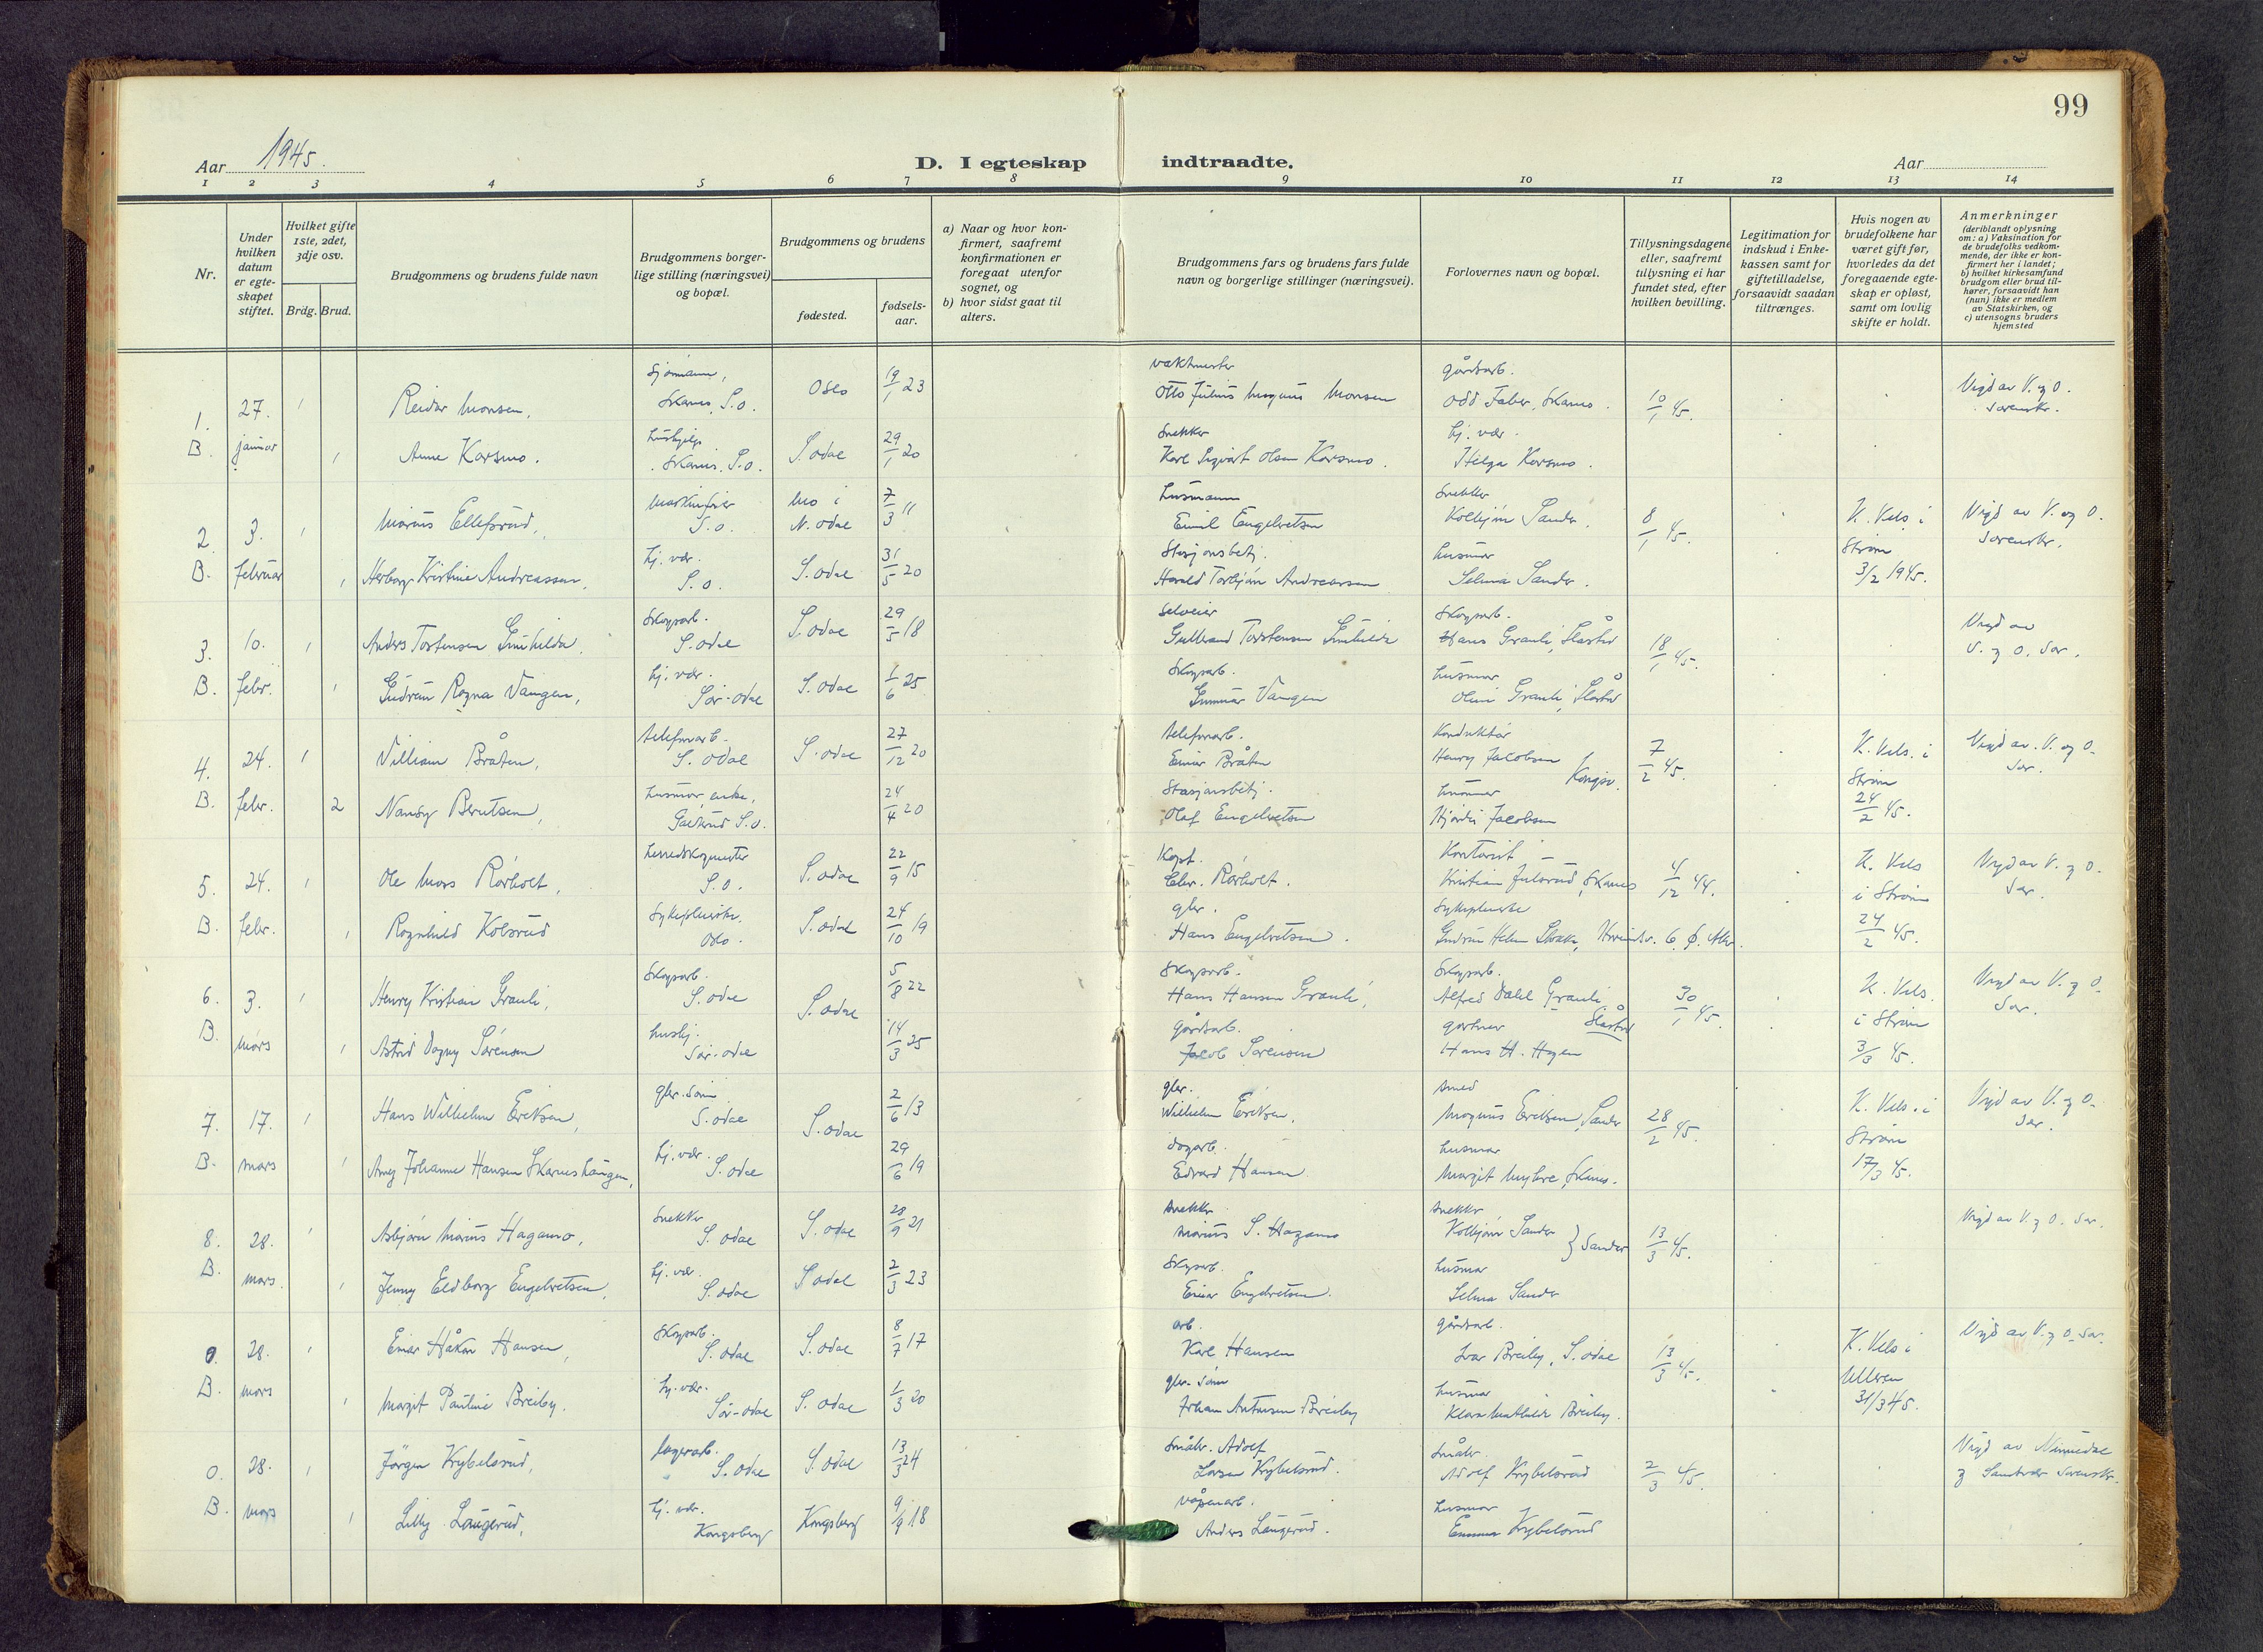 99
Aar 1945.
D. I egteskap indtraadte.
Aar
1 2 3 4 5 6 7 8 9 10 11 12 13 14
Nr.
Under hvilken datum er egteskapet stiftet.
Hvilket gifte 1ste, 2det, 3dje osv.
Brdg. Brud.
Brudgommens og brudens fulde navn
Brudgommens borgerlige stilling (næringsvei) og bopæl.
Brudgommens og brudens
fødested.
fødselsaar.
a) Naar og hvor konfirmert, saafremt konfirmationen er foregaat utenfor sognet, og
b) hvor sidst gaat til alters.
Brudgommens fars og brudens fars fulde navn og borgerlige stillinger (næringsvei).
Forlovernes navn og bopæl.
Tillysningsdagene eller, saafremt tillysning ei har fundet sted, efter hvilken bevilling.
Legitimation for indskud i Enkekassen samt for giftetilladelse, forsaavidt saadan tiltrænges.
Hvis nogen av brudefolkene har været gift før, hvorledes da det foregaaende egteskap er opløst, samt om lovlig skifte er holdt.
Anmerkninger (deriblandt oplysning om: a) Vaksination for de brudefolks vedkommende, der ikke er konfirmert her i landet; b) hvilket kirkesamfund brudgom eller brud tilhører, forsaavidt han (hun) ikke er medlem av Statskirken, og c) utensogns bruders hjemsted
1. 27. 1 Reidar Monsen, Sjømann, Skarnes, S.o. Oslo 19/1 23 vaktmester Otto Julius Magnus Monsen gårdsarb. Odd Faber, Skarnes. 10/1 45. Vigd av V. og O. Sorenskr.
B. januar 1 Anne Korsmo. hushjelp Skarnes. S.o. S. Odal 29/1 20 Snekker Karl Sigvart Olsen Korsmo. hj. vær. Helga Korsmo.
2. 3. 1 Marius Ellefsrud, S.o. Mo i N. Odal 7/3 11 husmann Emil Engelretsen Snekker Kolbjørn Sander. 8/1 45. K. Vels i Strøm 3/2 1945. Vigd av V. og O. Sorenskr.
B. februar 1 Herborg Kristine Andreassen, hj. vær. S.o. S. Odal 31/5 20 Stasjonsbetj. Harald Torbjørn Andreassen husmor Selma Sander.
3. 10. 1 Anders Torstensen Gunhildr. Skogsarb. S. Odal S. Odal 29/5 18 Selveier Gulbrand Torstensen Skogsarb. Hans Grauli, Slåstad 18/1 45. Vigd av V. og O. Sor.
B. febr. 1 Gudrun Ragna Vangen, hj. vær. Sør-Odal S. Odal 1/6 25 Skogsarb. Gunnar Vangen husmor Grauli, Slåstad
4. 24. 1 Villiam Bråten, telefonarb. S. Odal S. Odal 27/12 20 telefonarb. Einar Bråten Konduktør Henry Jacobsen Kongsv. 7/2 45. K. Vels. i Strøm 24/2 45. Vigd av V. og O. Sor.
B. febr. 2 Nansy Berntsen, husmor, enke, S.o. 24/4 20 Stasjonsbetj. Olaf Engelretsen husmor Hjørdis Jacobsen
5. 24. 1 Ole Mars Rørholt, herredskogmester S.o. S. Odal 22/9 15 Rørholt. Kontorist Kristian Julsrud, Skarnes 4/12 44. K. Vels i Strøm 24/2 45. Vigd av V. og O. Sor.
B. febr. 1 Ragnhild Kolsrud Sykepleierske, Oslo. S. Odal 24/10 19 gbr. Hans Engelretsen. Sykepleierske Gudrun Helen
6. 3. 1 Henry Kristian Grauli, Skogsarb. S. Odal S. Odal 5/8 22 Skogsarb. Hans Hansen Grauli, Skogsarb. Alfred Dahl Grauli Slåstad 30/1 45. K. Vels. i Strøm 3/3 45. Vigd av V. og O. Sor.
B. mars 1 Astrid Dagny Sørensen hushj. Sør-Odal 14/3 25 gårdsarb. Jacob Sørensen gartner Hans H. Hagen
7. 17. 1 Hans Wilhelm Eriksen, gbr. sønn S. Odal S. Odal 2/6 13 gbr. Wilhelm Eriksen, smed Magnus Eriksen, Sander 28/2 45. K. Vels. i Strøm 17/3 45. Vigd av V. og O. Sor.
B. mars 1 Johanne Hansen Skarneshaugen, hj. vær. S. Odal 29/6 19 dagarb. Edvard Hansen husmor Margit Myhre, Skarnes.
8. 28. 1 Asbjørn Marius Hagamo, Snekker S. Odal S. Odal 28/9 21 Snekker Marius S. Hagamo snekker Kolbjørn Sander } Sander 13/3 45. Vigd av V. og O. Sor.
B. mars. 1 Jenny Eldborg Engelretsen, hj. vær. S. Odal S. Odal 2/3 23 Skogsarb. Einar Engelretsen. husmor Selma Sander
9. 28. 1 Einar Håkon Hansen, Skogsarb. S. Odal S. Odal 8/7 17 arb. Karl Hansen gårdsarb. Ivar Breiby, S. Odal 13/3 45. K. Vels i Ulleren 31/3 45. Vigd av V. og O. Sor.
B. mars 1 Margit Pauline Breiby. hj. vær. Sør-Odal S. Odal 1/3 20 gbr. sønn Johan Antonsen Breiby husmor Klara Mathilde Breiby.
0. 28. 1 Jørgen Krybelsrud, lagerarb. S. Odal S. Odal 13/3 24 Småbr. Adolf Larsen Krybelsrud. Småbr. Adolf Krybelsrud 2/3 45. Vigd av Numedal og Sandsvær Sorenskr.
B. mars 1 Lilly Laugerud, hj. vær. Kongsberg Kongsberg 9/9 18 våpenarb. Anders Laugerud. husmor Emma Krybelsrud